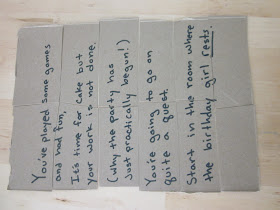 You've played some games
and had fun,
It's time for cake but
your work is not done.
(Why the party has
just practically begun!)
You're going to go on
quite a quest.
Start in the room where
the birthday girl rests.